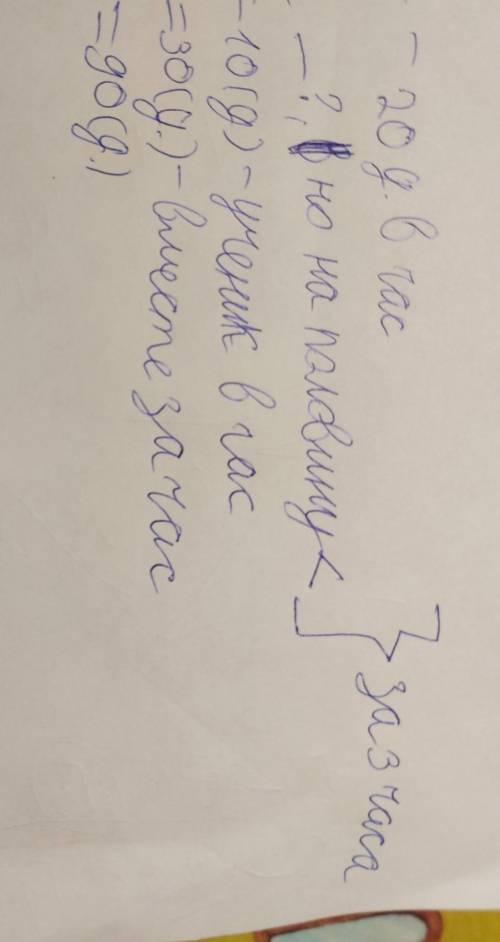 - 20 д. в час
- ?, но на половину <
} за 3 часа
- 10(д) - ученик в час
= 30(д.) - вместе за час
= 90(д.)